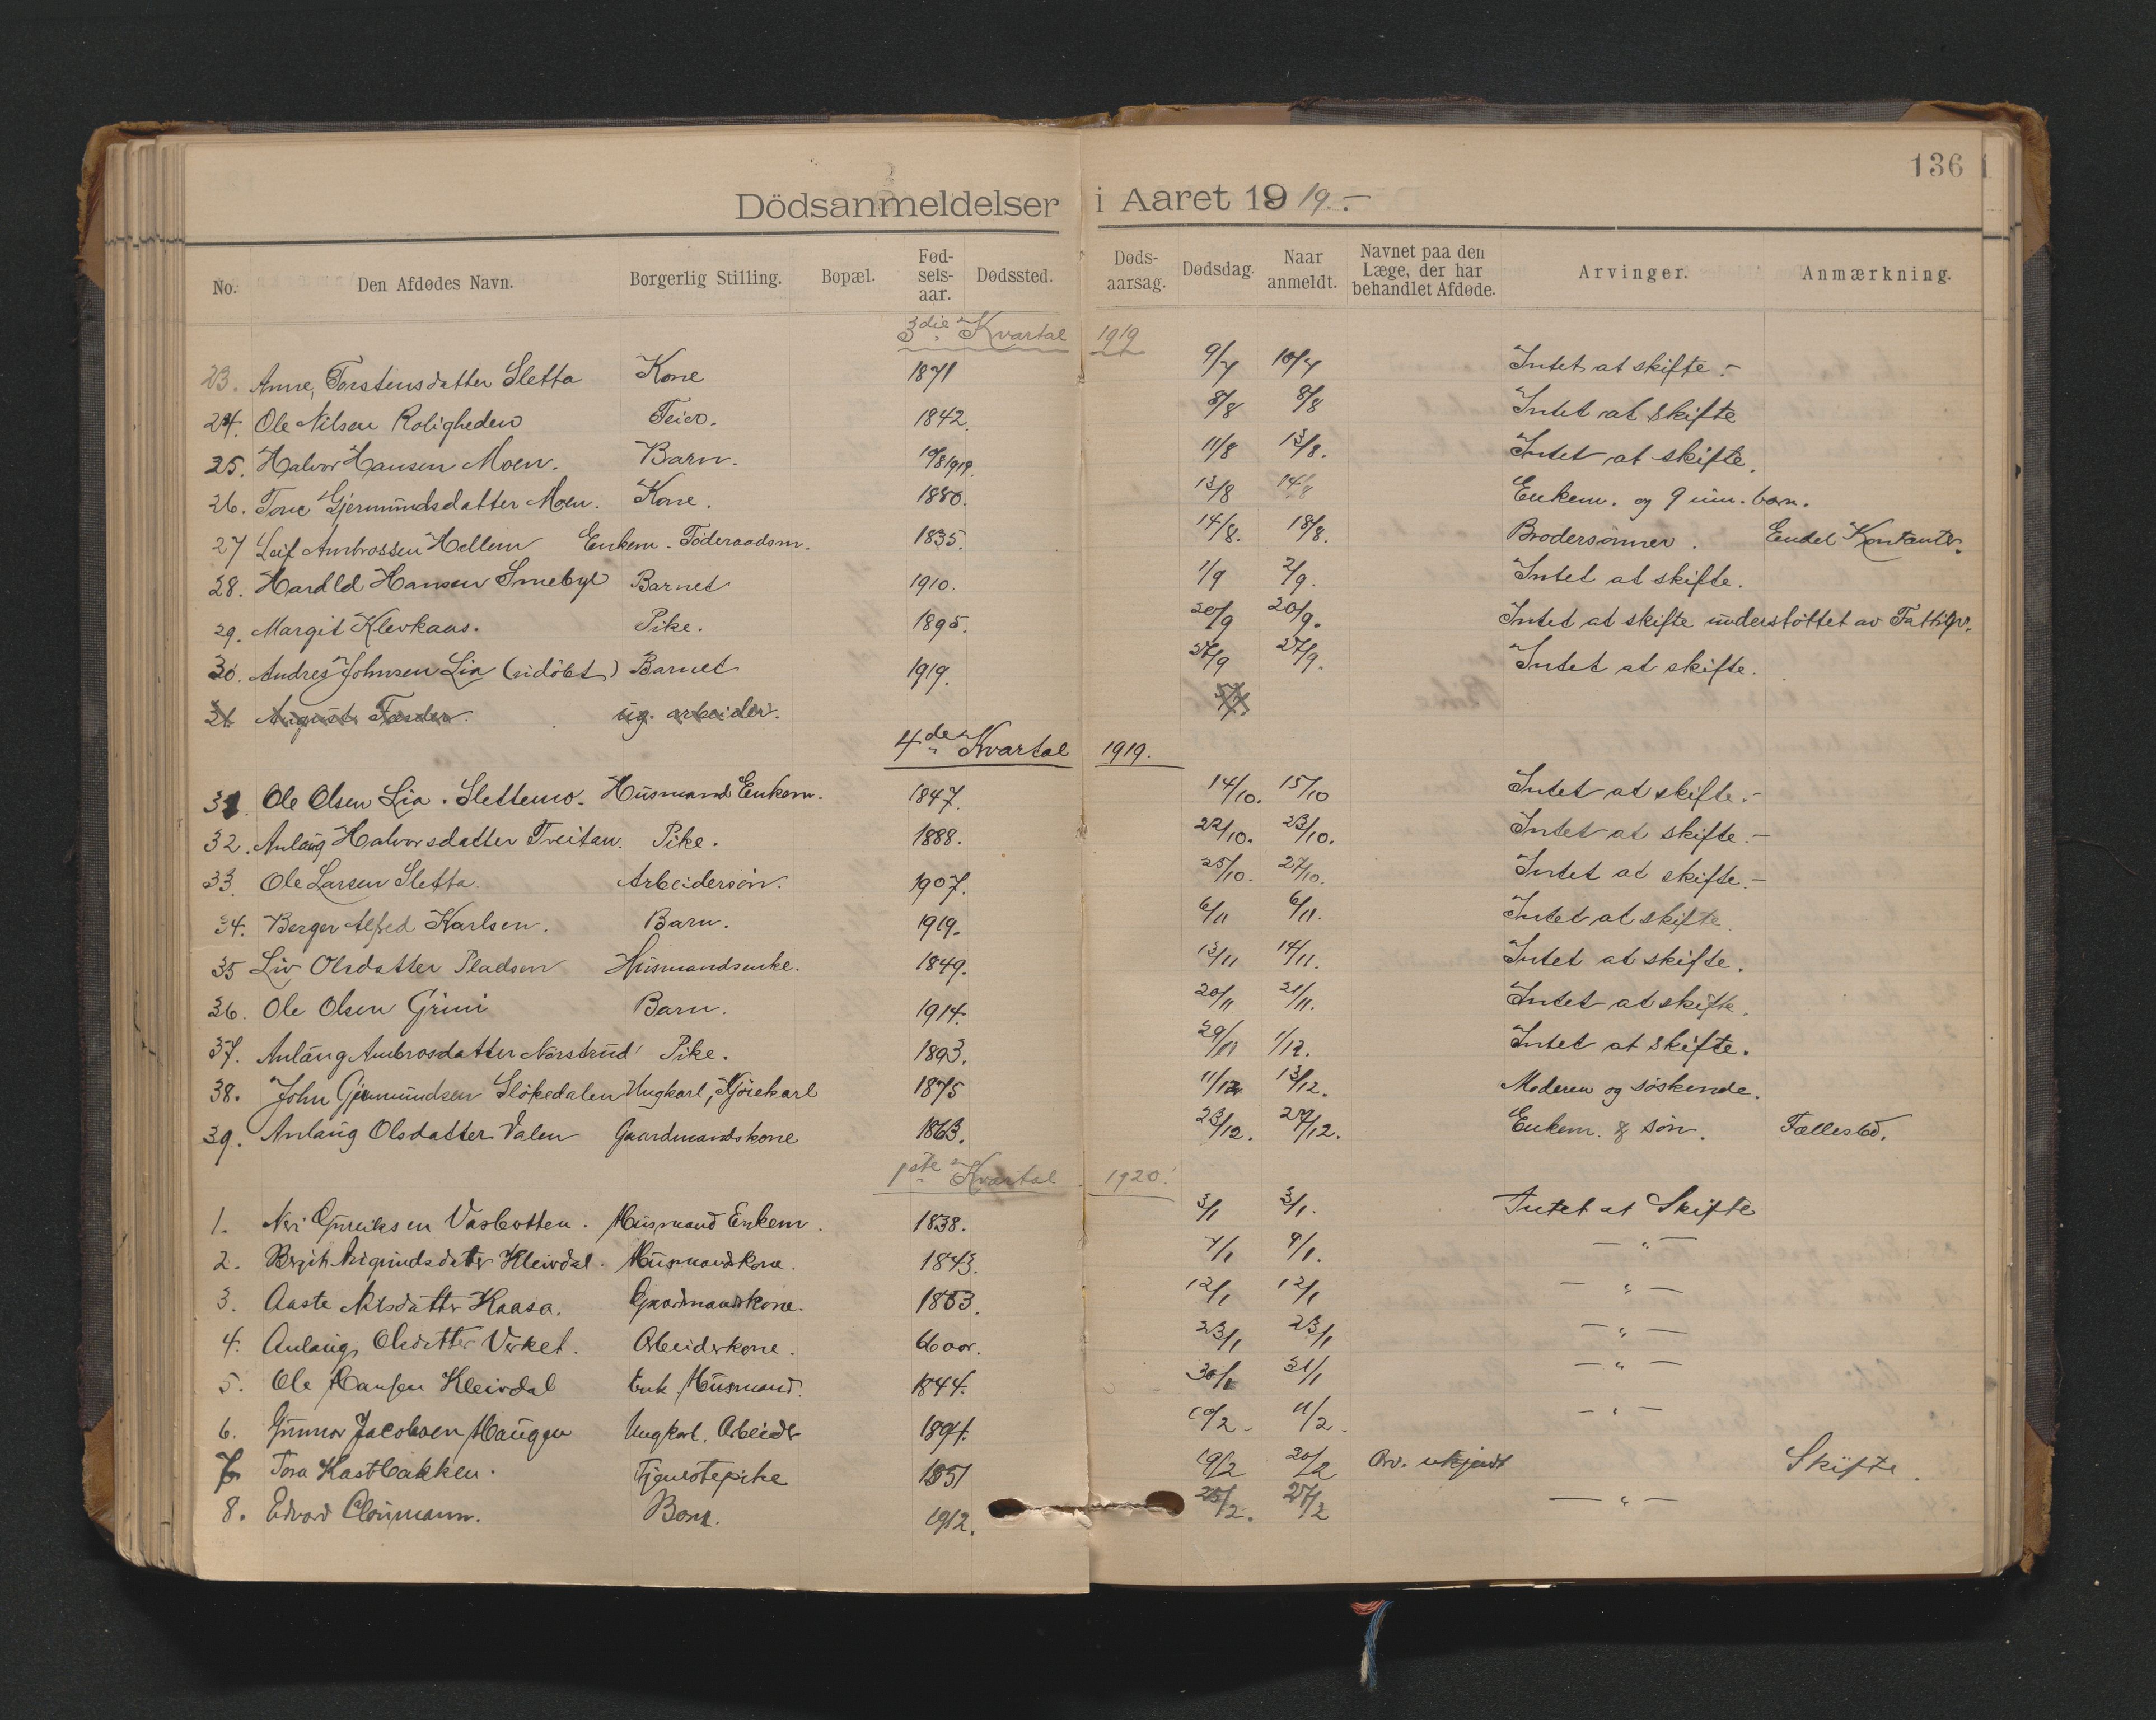 136
Dödsanmeldelser i Aaret 1919.-
No. Den Afdødes Navn. Borgerlig Stilling. Bopæl. Fødselsaar. Dødssted. Dødsaarsag. Dødsdag. Naar anmeldt. Navnet paa den Læge, der har behandlet Afdøde. Arvinger. Anmærkning.
3die Kvartal 1919
23. Anne Torstensdatter Sletta Kone 1871 9/7 10/7 Intet at skifte.-
24. Ole Nilsen Roligheden 1842. 8/8 8/8 Intet at skifte
25. Halvor Hansen Moen. Barn. 10/8 1919. 11/8 13/8. Intet at skifte.
26. Tone Gjermundsdatter Moen. Kone. 1880. 13/8 14/8 Enkem. og 9 um. børn.
27 Leif Ambrossen Hellem Enkem. Föderaadsm. 1835. 14/8. 18/8. Brodersønner. Endel Kontanter.
28. Harald Hansen Smebyl Barnet 1910. 1/9 2/9. Intet at skifte.
29. Margit Klevkaas. Pike. 1895. 20/9 20/9. Intet at skifte understöttet av Fattigv.
30. Andres Johnsen Lia (udöbt) Barnet 1919. 27/9 27/9. Intet at skifte.
31 August ug. arbeider.
4de Kvartal 1919.
31. Ole Olsen Lia. Slettemo. Husmand Enkem. 1847. 14/10. 15/10 Intet at skifte.-
32. Anlaug Halvorsdatter Treitan. Pike. 1888. 22/10. 23/10. Intet at skifte.-
33. Ole Larsen Sletta. Arbeidersön. 1907. 25/10. 27/10. Intet at skifte.-
34. Berger Alfred Karlsen. Barn. 1919. 6/11 6/11. Intet at skifte.
35 Liv Olsdatter Pladsen Husmandsenke. 1849. 13/11 14/11. Intet at skifte.
36. Ole Olsen Grini Barn. 1914. 20/11 21/11. Intet at skifte.
37. Anlaug Ambrosdatter Norstrud Pike. 1893. 29/11 1/12. Intet at skifte.
38. John Gjermundsen Slökedalen Ungkarl, Kjörekarl 1875 11/12 13/12. Moderen og søskende.
39. Anlaug Olsdatter Valen Gaardmandskone 1863. 23/12. 29/12. Enkem. & søn. Fællesbo.
1ste Kvartal 1920.
1. Neri Gunriksen Vasbotten. Husmand Enkem. 1838. 3/1 3/1. Intet at Skifte
2. Bergit Aslaugsdatter Kleivdal. Husmandskone. 1843. 7/1 9/1. — " —
3. Aaste Nilsdatter Haasa. Gaardmandskone. 1853. 12/1 12/1 — " —
4. Anlaug Olsdatter Verket. Arbeiderkone. 66 aar. 23/1 23/1 — " —
5. Ole Hansen Kleivdal Enk. Husmand. 1844. 30/1 31/1 — " —
6. Gunnar Jacobsen Haugen Ungkarl. Arbeider 1894. 10/2 - 11/2 - — " —
7. Tora Kastbakken. Tjenestepike 1851 19/2 20/2 Arv. ukjendt Skifte.
8. Edvard Barn. 1912. 25/2. 27/2 — " —